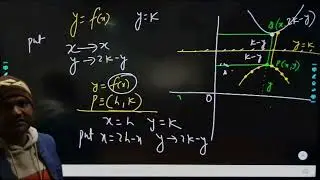 y = f(x)    y = k
put
x → x
y → 2k-y
y = f(x)
P = (h, k)
x = h    y = k
put x = 2h-x    y → 2k-y
Q(x, 2k-y)
k-y
y = k
k-y
P(x, y)
O